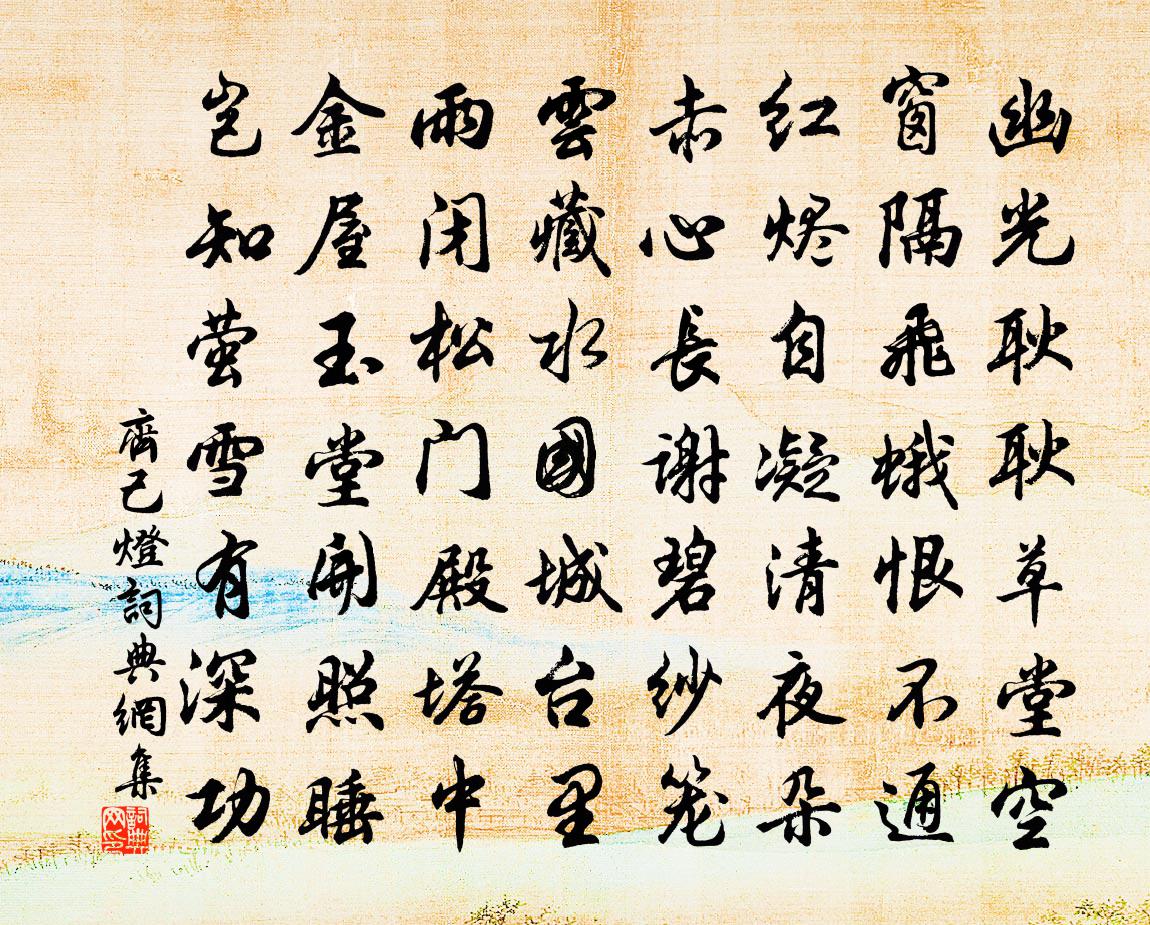 幽光耿耿草堂空
窗隔飛蛾恨不通
红烬自凝清夜朵
赤心長谢碧纱笼
雲藏水國城台里
雨闭松门殿塔中
金屋玉堂開照睡
岂知萤雪有深功
齊己燈詞典網集
詞典网印